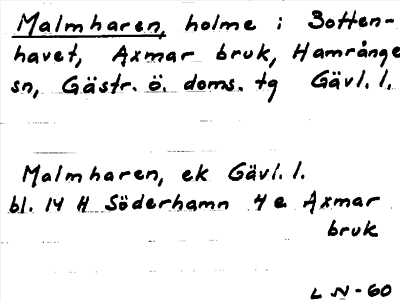 Malmharen, holme i Botten-
havet, Axmar bruk, Hamrånge
sn, Gästr. ö. doms. tg Gävl. l.
Malmharen, ek Gävl. l.
bl. 14 H Söderhamn 4 e Axmar
bruk
L N-60